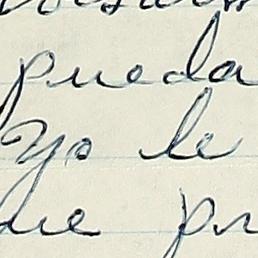 pueda
Yo le
ue pr